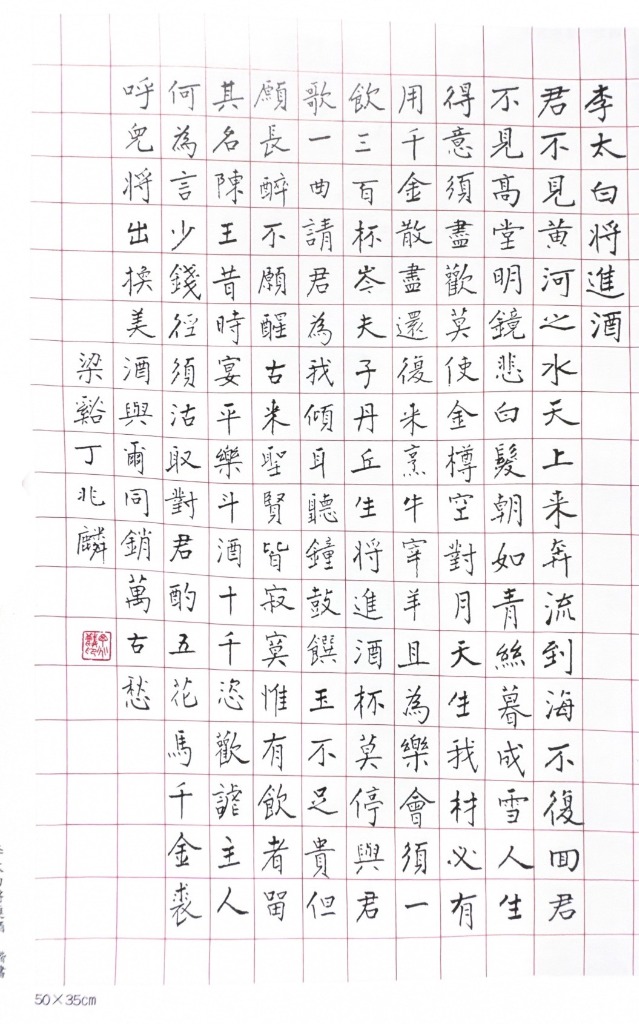 李太白将進酒
君不見黄河之水天上来奔流到海不復囬君
不見高堂明鏡悲白髮朝如青絲暮成雪人生
得意須盡歡莫使金樽空對月天生我材必有
用千金散盡還復来烹牛宰羊且為樂會須一
飲三百杯岑夫子丹丘生将進酒杯莫停與君
歌一曲請君為我傾耳聽鐘鼓饌玉不足貴但
願長醉不願醒古来聖賢皆寂寞惟有飲者留
其名陳王昔時宴平樂斗酒十千恣歡謔主人
何為言少錢徑須沽取對君酌五花馬千金裘
呼兒将出換美酒與爾同銷萬古愁
梁谿丁兆麟
50×35cm